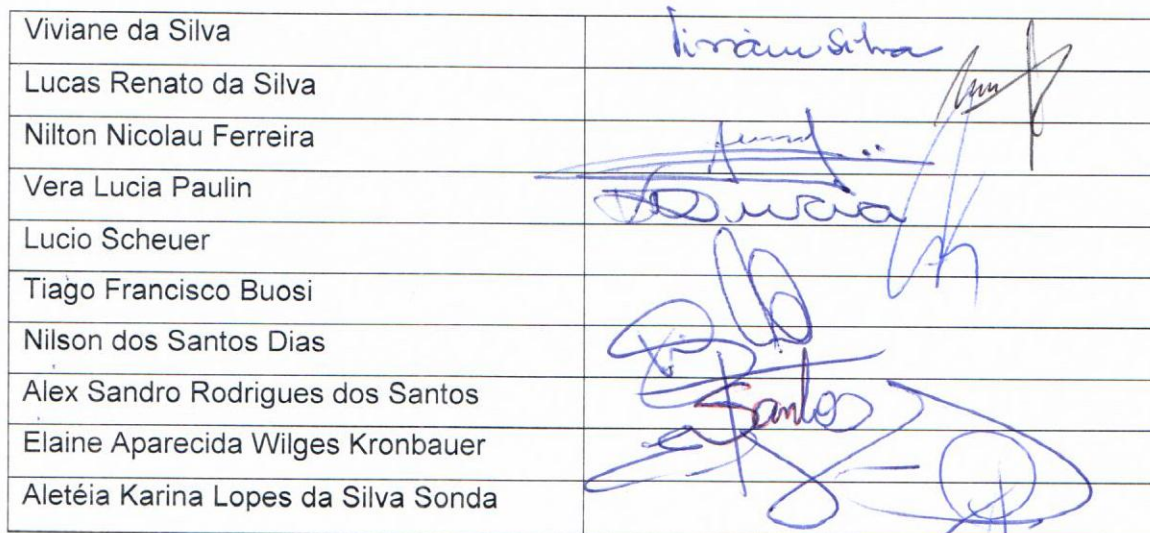 Viviane da Silva
Silva
Lucas Renato da Silva
Nilton Nicolau Ferreira
Vera Lucia Paulin
Lucia
Lucio Scheuer
Tiago Francisco Buosi
Nilson dos Santos Dias
Alex Sandro Rodrigues dos Santos
Santos
Elaine Aparecida Wilges Kronbauer
Aletéia Karina Lopes da Silva Sonda